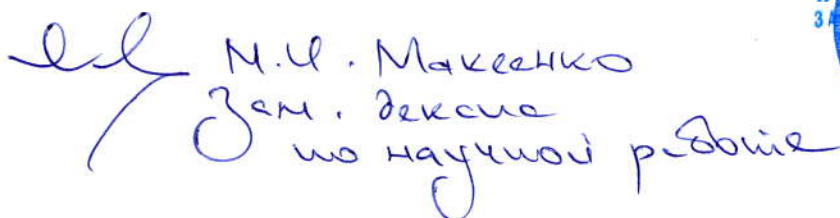 М.И. Максенко
Зам. декана
по научной работе
ЗА